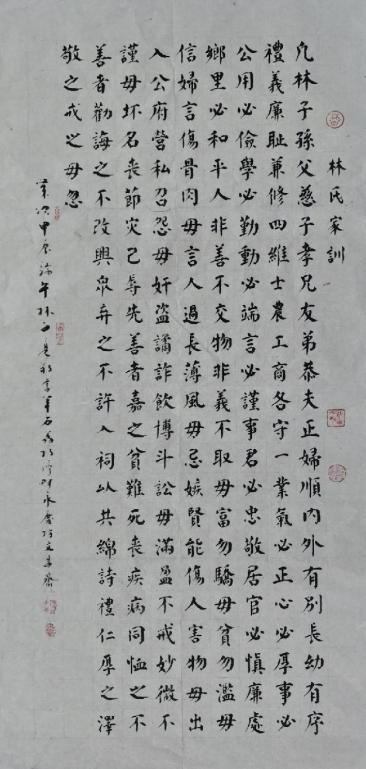 林氏家訓
凡林子孫父慈子孝兄友弟恭夫正婦順內外有別長幼有序
禮義廉恥兼修四維士農工商各守一業氣必正心必厚事必
公用必儉學必勤動必端言必謹事君必忠敬居官必慎廉處
鄉里必和平人非善不交物非義不取毋富勿驕毋貧勿濫毋
信婦言傷骨肉毋言人過長薄風毋忌嫉賢能傷人害物毋出
入公府營私召怨毋奸盜譎詐飲博斗訟毋滿盈不戒妙微不
謹毋坏名喪節灾己辱先善者嘉之貧難死喪疾病同恤之不
善者勸誨之不改興眾弃之不許入祠以共綿詩禮仁厚之澤
敬之戒之毋忽
歲次甲辰端午林